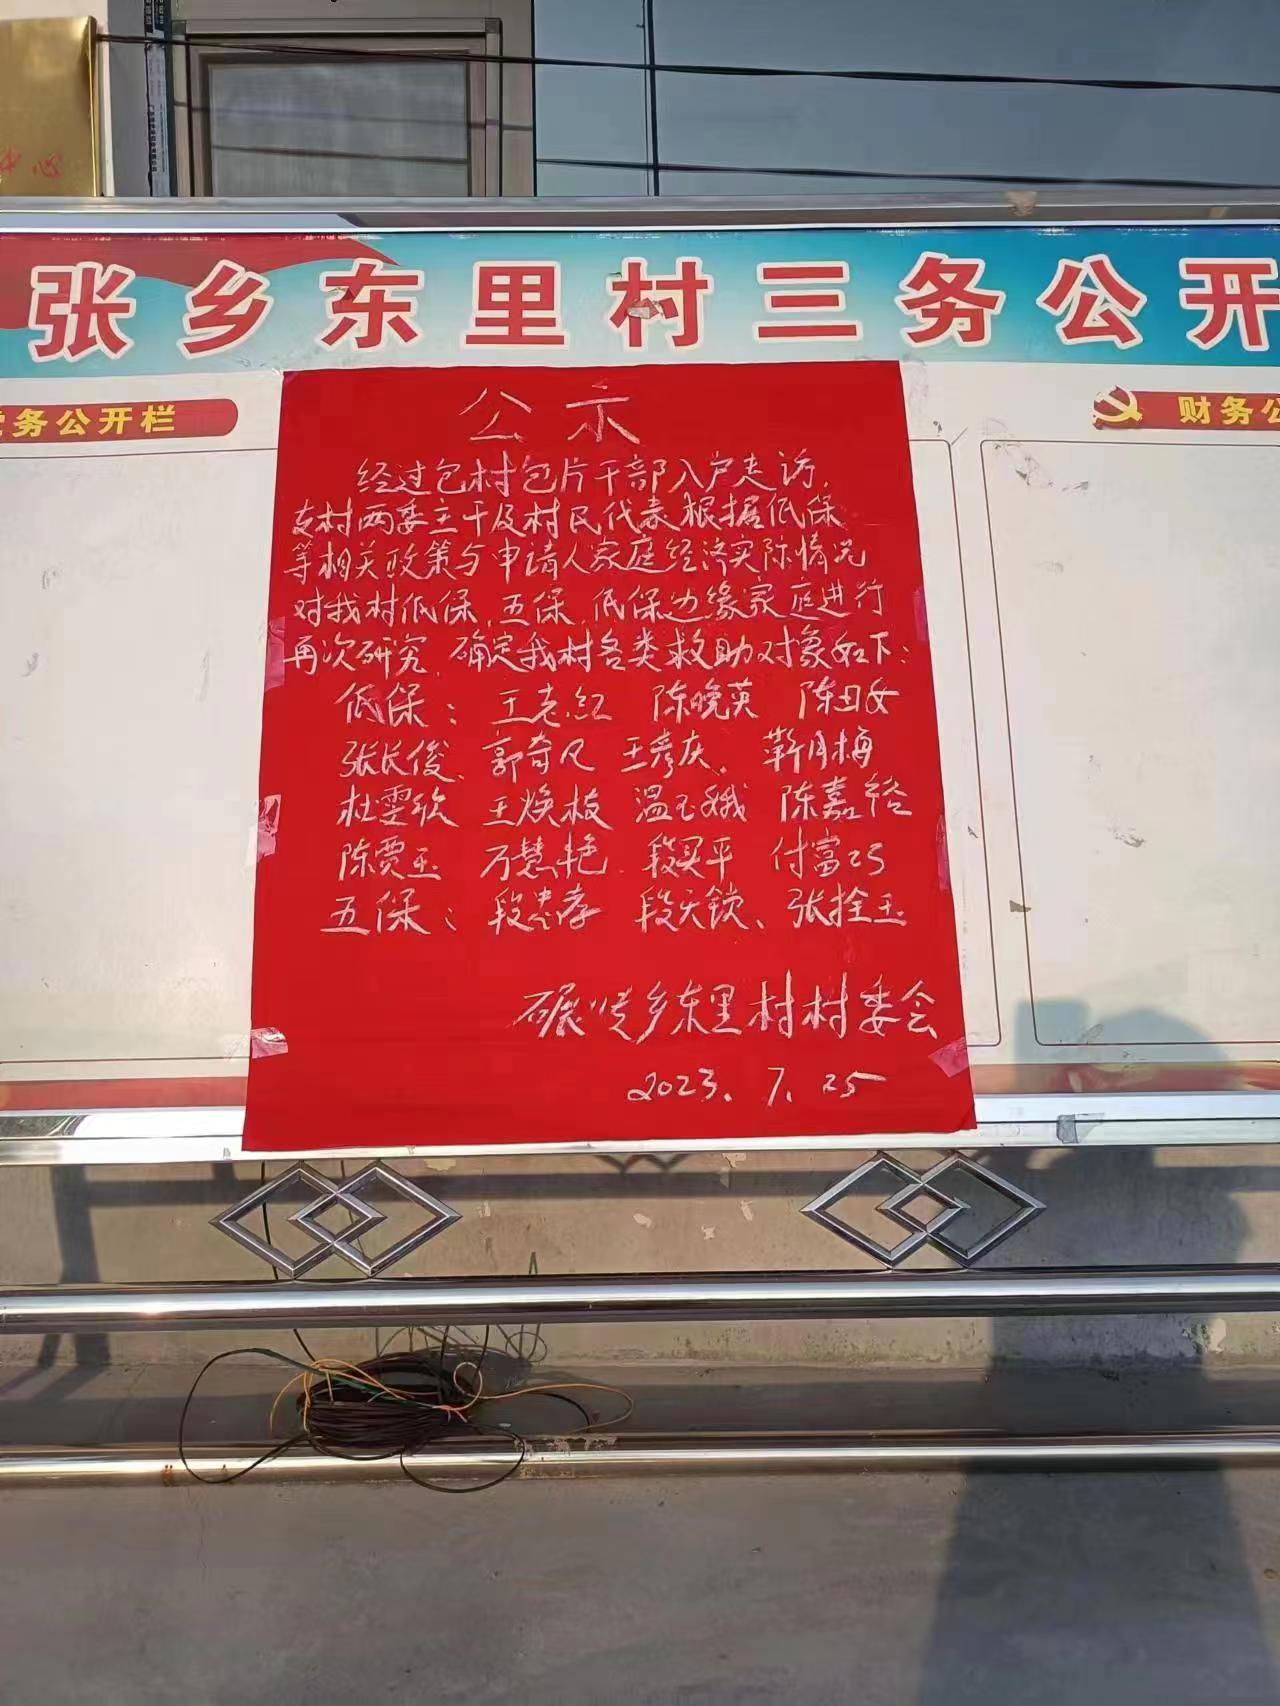 中心
张乡东里村三务公开
党务公开栏
财务公
公示
经过包村包片干部入户走访,
支村两委主干及村民代表根据低保
等相关政策与申请人家庭经济实际情况
对我村低保、五保、低保边缘家庭进行
再次研究, 确定我村各类救助对象如下:
低保: 王老红 陈晚英 陈田女
张长俊、郭奇凡 王彦庆、靳月梅
杜雯欣 王焕枝 温玉娥 陈嘉裕
陈贾玉 万慧艳 段买平 付富巧
五保: 段忠孝 段天锁、张拴玉
碾张乡东里村村委会
2023、7、25